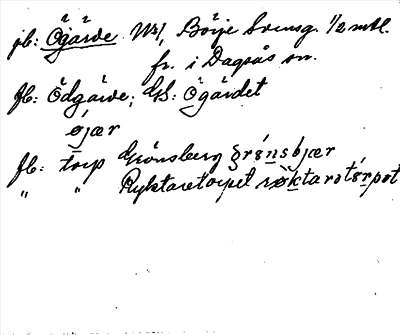 jb: Ögärde N:r 1, Börje Svensg. 1/2 mtl.
fr. i Dagsås sn.
Jb: Ödgärde; GS: Ögärdet
øjær
Jb: torp Grönsberg grönsbjær
" " Ryktaretorpet røktaretórpet